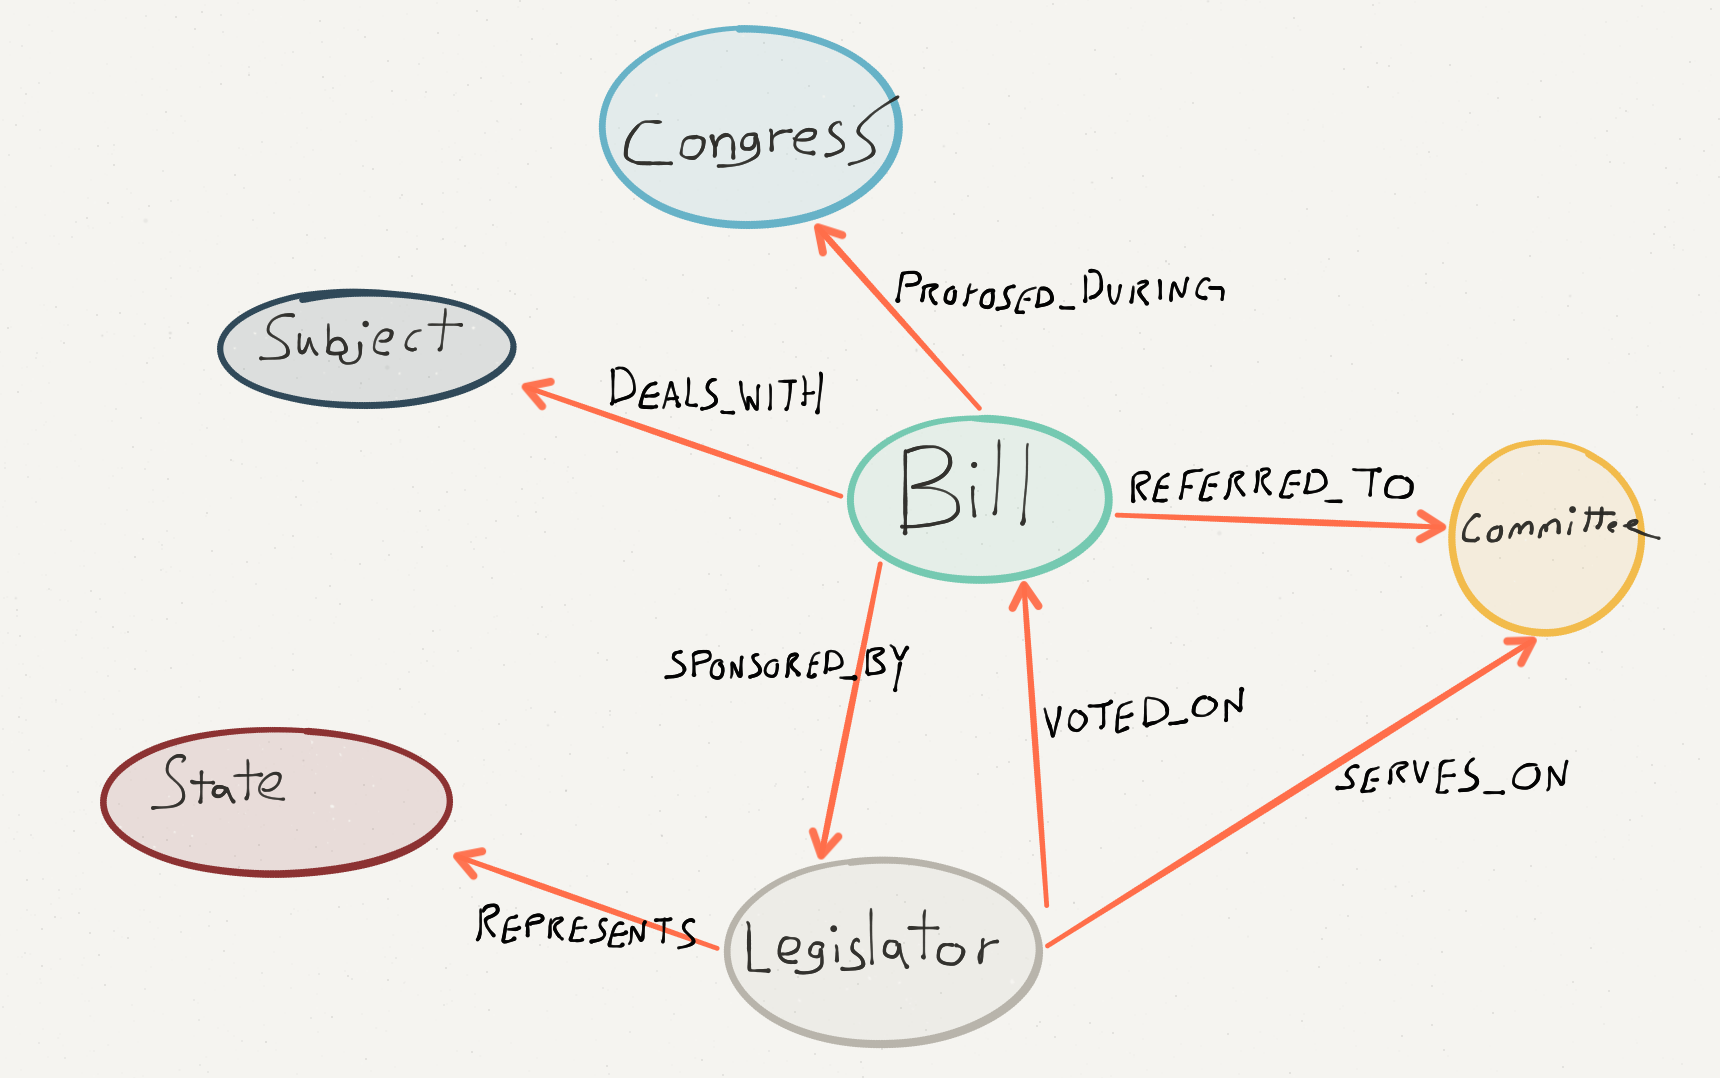 Congress
PROPOSED_DURING
Subject
DEALS_WITH
Bill
REFERRED_TO
Committee
SPONSORED_BY
VOTED_ON
SERVES_ON
State
REPRESENTS
Legislator